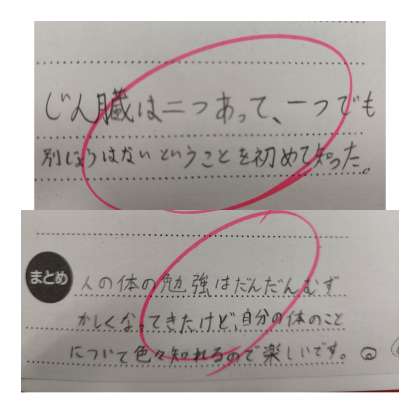 じん臓は二つあって、一つでも
別じょうはないということを初めて知った。
まとめ
人の体の勉強はだんだんむず
かしくなってきたけど、自分の体のこと
について色々知れるので楽しいです。